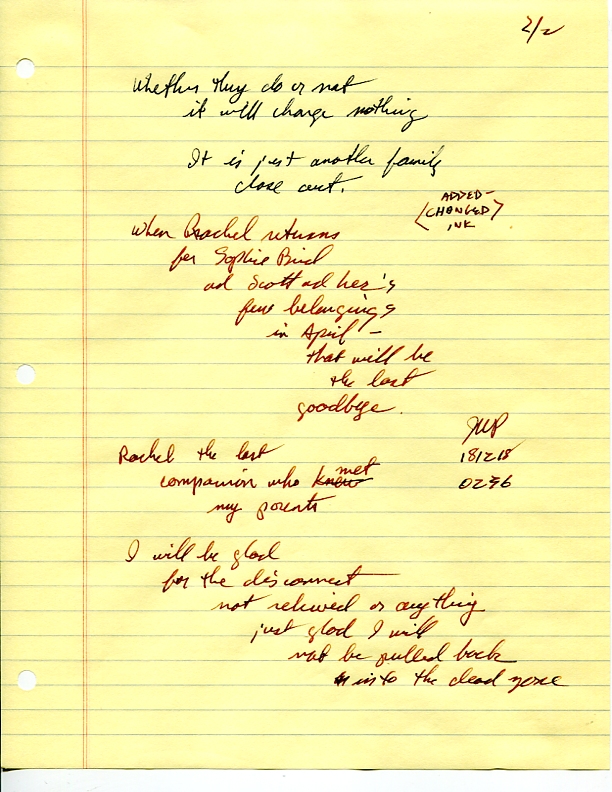 2/2
Whether they do or not
it will change nothing
It is just another family
close out.
ADDED -
<CHANGED>
INK
When Rachel returns
for Sophie Bird
ad Scott ad her's
few belongings
in April -
that will be
the last
goodbye.
JWP
18/2/18
0236
Rachel the last
companion who knew met
my parents
I will be glad
for the disconnect
not relieved or anything
just glad I will
not be pulled back
into the dead zone